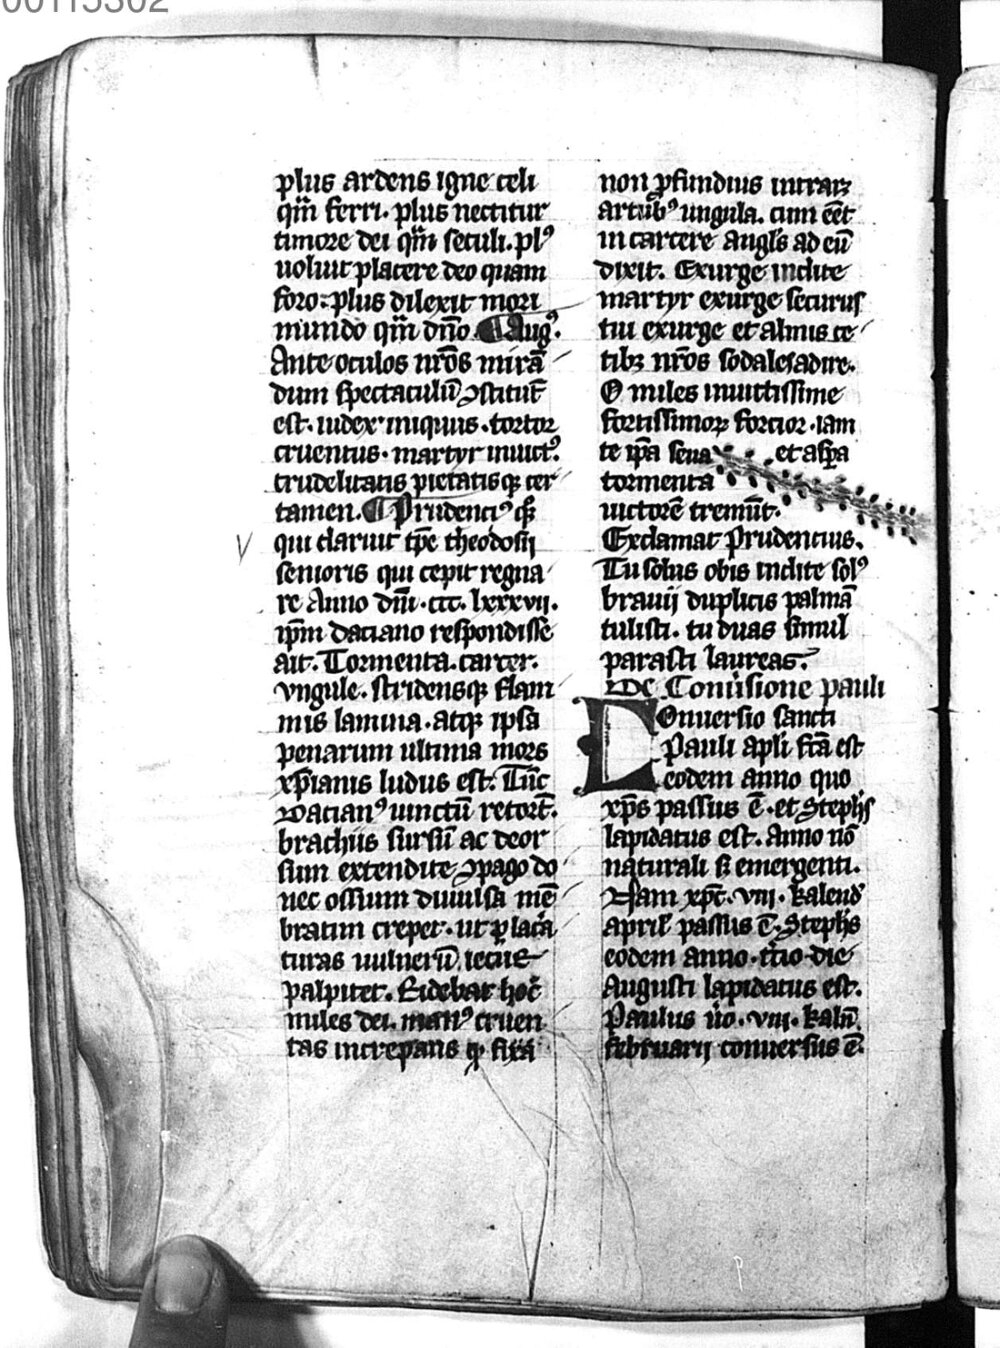 00115302
plus ardens igne celi
qm̄ ferri. plus nectitur
timore dei qm̄ seculi. plꝰ
uoluit placere deo quam
foro. plus dilexit mori
mundo qm̄ dn̄o. ¶ Augꝰ.
Ante oculos nr̄os mirā
dum spectaculū ꝯstitut̄
est. iudex iniquus. tortor
cruentus. martyr inuictꝰ.
crudelitatis pietatisqꝫ cer
tamen. ¶ Prudenciꝰ
qui claruit tp̄e theodosij
senioris qui cepit regna
re Anno dn̄i. ccc. lxxxvij.
ip̄m daciano respondisse
ait. Tormenta. carcer.
vngule. stridensqꝫ flam
mis lamina. atqꝫ ipsa
penarum ultima mors
xp̄ianis ludus est. Tūc
Dacianꝰ uinctū retort̄.
brachiis sursū ac deor
sum extendite ꝯpago do
nec ossium diuulsa mē
bratim crepet. ut ꝑ lacera
turas uulnerū iecus
palpitet. Ridebat hoc
miles dei. manꝰ cruen
tas increpans ꝙ fixa
non ꝓfundius intraꝫ
artubꝰ ungula. cum eēt
in carcere angls̄ ad eū
dixit. Exurge inclite
martyr exurge securus
tui exurge et almis ce
tibꝫ nr̄os sodales adire.
O miles inuictissime
fortissimoꝝ forcior. iam
te ip̄a seua et asꝑa
tormenta
uictorē tremūt.
Exclamat Prudencius.
Tu solus obis inclite solꝰ
brauij duplicis palmā
tulisti. tu duas simul
parasti laureas.
De Conuersione pauli
Conuersio sancti
Pauli apli fc̄a est
eodem anno quo
xp̄s passus ē. et Stephs
lapidatus est. Anno nō
naturali sꝫ emergenti.
Nam xp̄c. viij. kalend
april passus ē. Stephs
eodem anno. tc̄io die
Augusti lapidatus est.
Paulus uo. viij. kaln̄.
februarij conuersus ē.